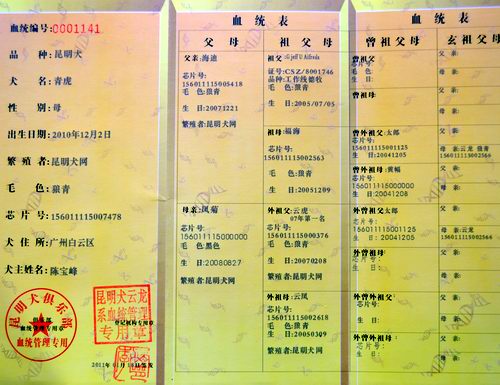 血统编号:0001141
品 种:昆明犬
犬 名:青虎
性 别:母
出生日期:2010年12月2日
繁 殖 者:昆明犬网
毛 色:狼青
芯 片 号:156011115007478
犬 住 所:广州白云区
犬主姓名:陈宝峰
昆明犬俱乐部
血统管理专用
昆明犬云龙
系血统管理
专用章
登记机构专用章
血统表
父母
祖父母
父亲:海迪
芯片号:
156011115005418
毛 色:狼青
生 日:20071221
繁殖者:昆明犬网
母亲:凤菊
芯片号:
156011115000000
毛 色:黑色
生 日:20080827
繁殖者:昆明犬网
祖父:
证号:CSZ/8001746
品种:工作线德牧
毛 色:狼青
生 日:2005/07/05
祖母:福海
芯片号:
156011115002563
毛 色:狼青
生 日:20051209
外祖父:云虎
07年第一名
芯片号:
156011115000376
毛 色:狼青
生 日:20070208
繁殖者:昆明犬网
外祖母:云凤
芯片号:
156011115002618
毛 色:狼青
生 日:20050309
繁殖者:昆明犬网
血统表
曾祖父母
玄祖父母
曾祖父:
芯片号:
毛 色:
生 日:
曾祖母:
外曾祖父:太郎
芯片号:
156011115001125
生 日:20041205
外曾祖母:黄幅
芯片号:
156011115000000
生 日:20041208
外曾祖父:太郎
芯片号:
156011115001125
生 日:20041205
外曾祖母:
芯片号:
生 日:
外曾外祖父:
芯片号:
生 日:
外曾外祖母:
芯片号:
生 日:
父 亲:
母 亲:
父 亲:
母 亲:
父 亲:
母 亲:云龙 狼青
156011115002566
父 亲:
母 亲:
父 亲:
母 亲:云龙
156011115002566
父 亲:
母 亲:
父 亲:
母 亲:
父 亲:
母 亲: